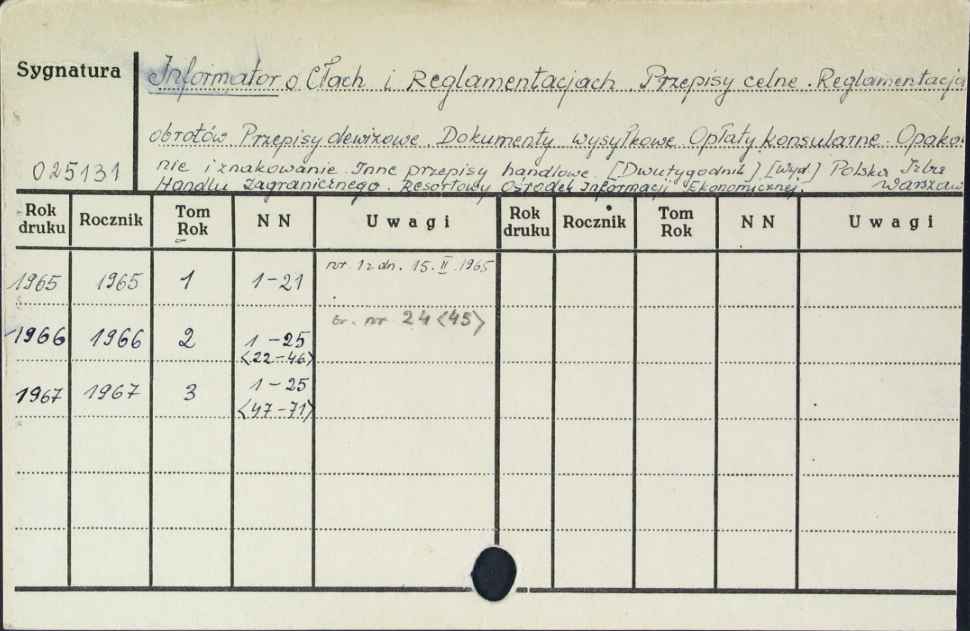 Sygnatura
Informator o Cłach i Reglamentacjach. Przepisy celne. Reglamentacja
obrotów Przepisy dewizowe. Dokumenty wysyłkowe Opłaty konsularne. Opako
nie i znakowanie. Inne przepisy handlowe. [Dwutygodnik] [Wyd.] Polska Izba
025131
Handlu Zagranicznego. Resortowy Ośrodek Informacji Ekonomicznej. Warszaw
Rok druku Rocznik Tom Rok NN Uwagi Rok druku Rocznik Tom Rok NN Uwagi
1965 1965 1 1-21 nr. 1 z dn. 15. II. 1965
1966 1966 2 1-25 nr 24 <45>
<22-46>
1967 1967 3 1-25
<47-71>